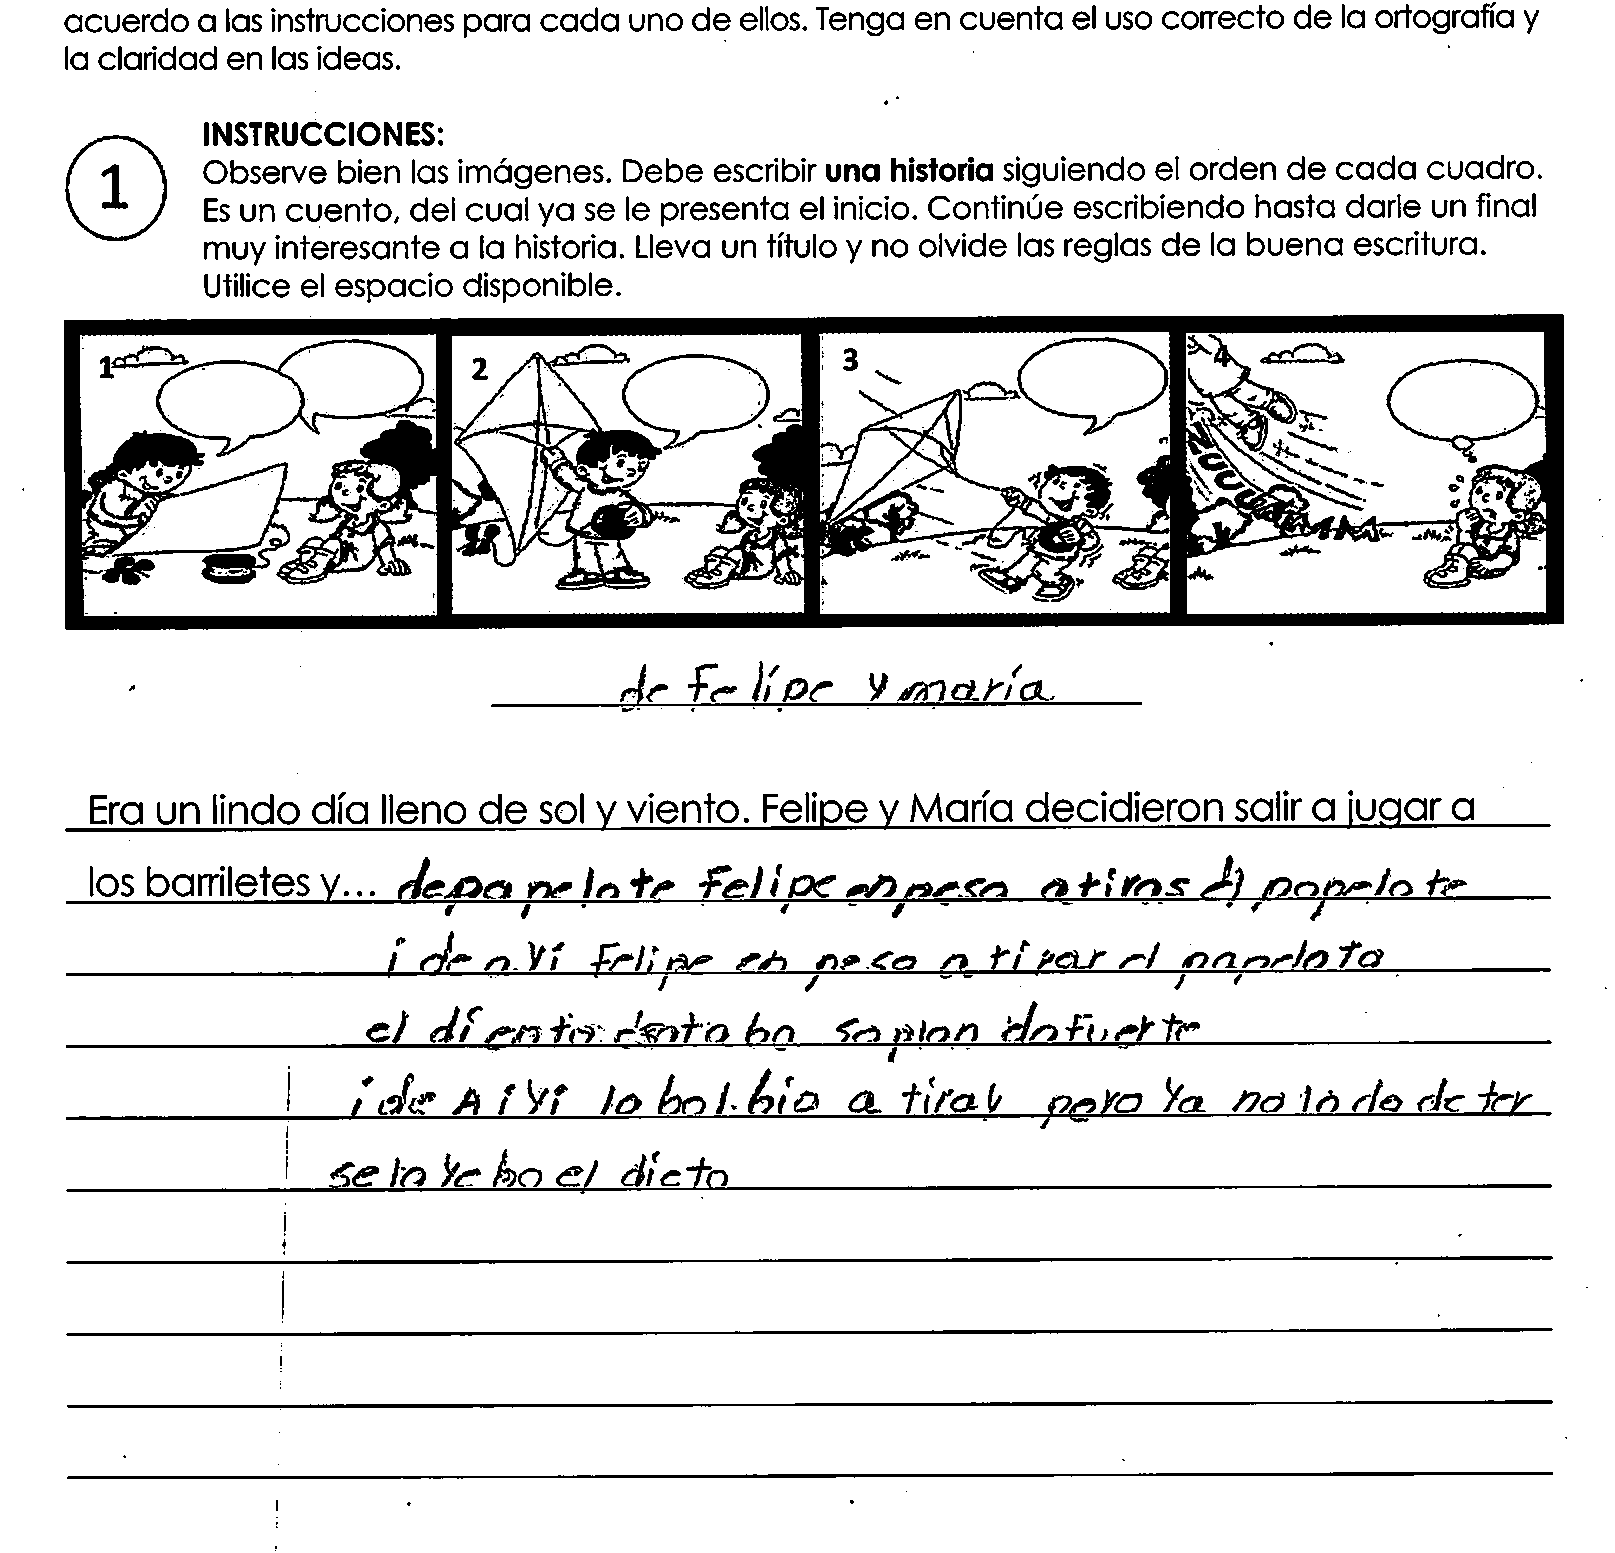 acuerdo a las instrucciones para cada uno de ellos. Tenga en cuenta el uso correcto de la ortografía y
la claridad en las ideas.
INSTRUCCIONES:
1
Observe bien las imágenes. Debe escribir una historia siguiendo el orden de cada cuadro.
Es un cuento, del cual ya se le presenta el inicio. Continúe escribiendo hasta darle un final
muy interesante a la historia. Lleva un título y no olvide las reglas de la buena escritura.
Utilice el espacio disponible.
1 2 3 4
ZUUUU
de Felípe y maría
Era un lindo día lleno de sol y viento. Felipe y María decidieron salir a jugar a
los barriletes y... depapelote Felipe enpesa a tiras el papelote
i de a yí Felipe en pesa a tirar el papelota
el díento dentaba soplan do fuerte
i de A í yi lo bol bio a tiral pero Ya no lo do de ter
se lo ye bo el dieto